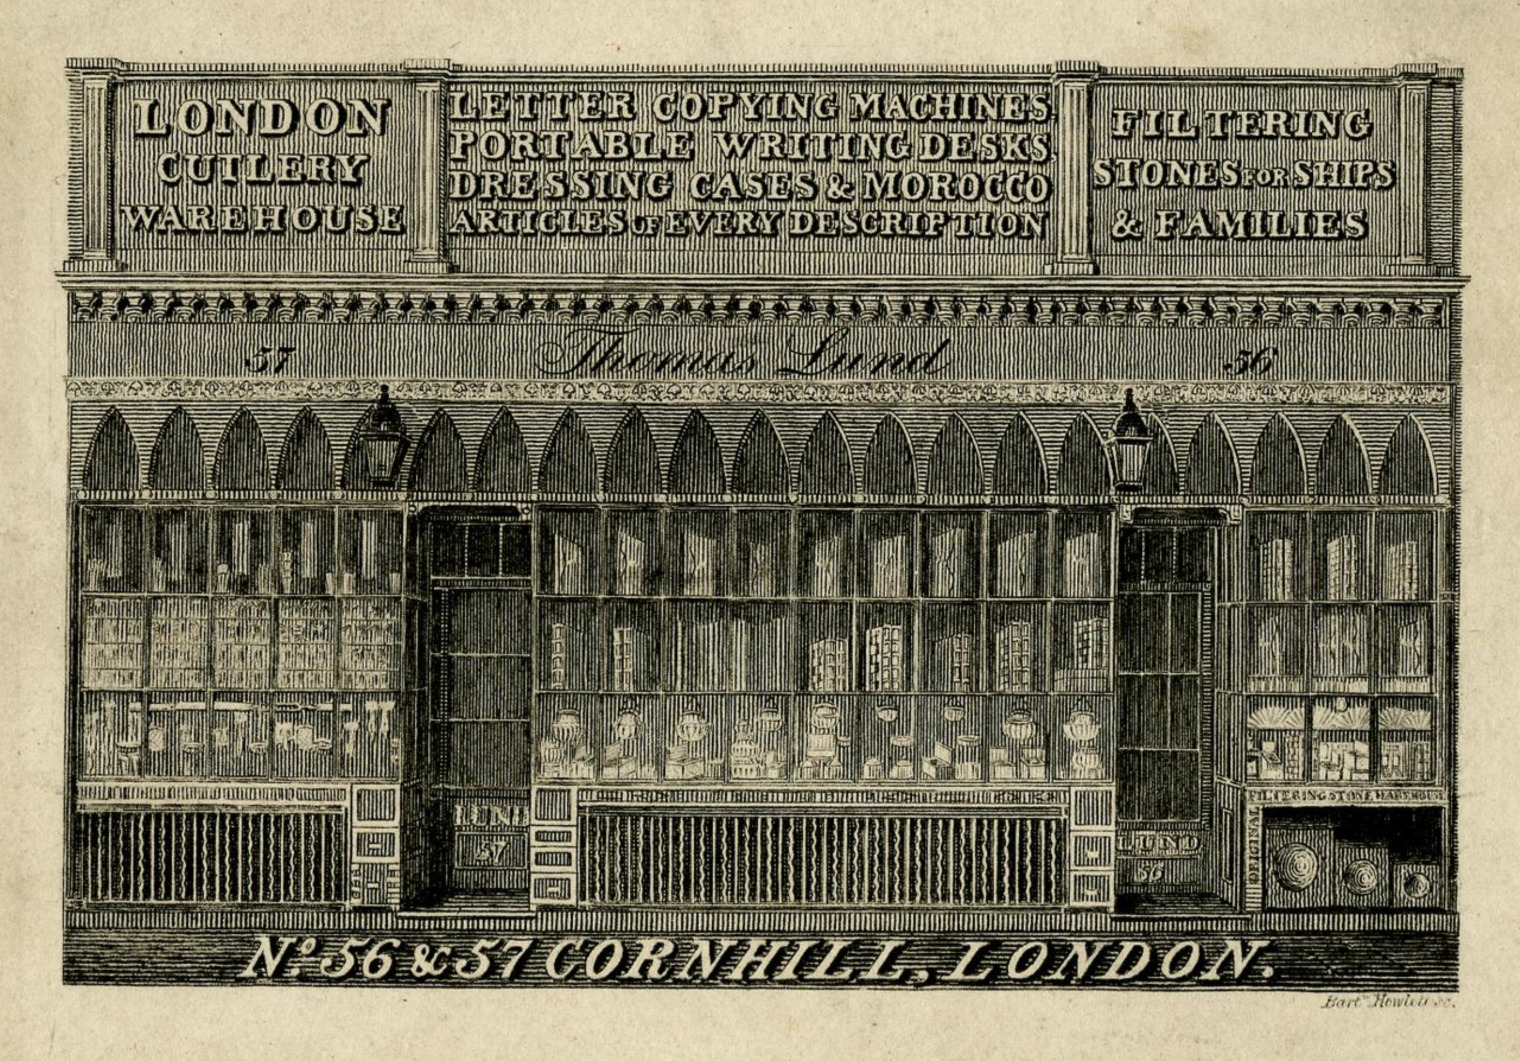 LONDON
CUTLERY
WAREHOUSE
LETTER COPYING MACHINES,
PORTABLE WRITING DESKS,
DRESSING CASES & MOROCCO
ARTICLES OF EVERY DESCRIPTION
FILTERING
STONES FOR SHIPS
& FAMILIES
57
Thomas Lund
56
LUND
57
LUND
56
ORIGINAL
FILTERING STONE WAREHOUSE
No. 56 & 57 CORNHILL, LONDON.
Bartw. Howlett sc.